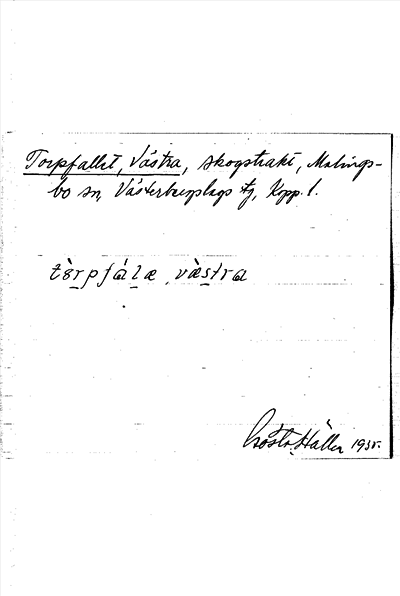 Torpfallet, Västra, skogstrakt, Malings-
bo sn, Västerbergslags tg, Kopp. l.
tòrpfálæ væ̀stra
Gösta Häller 1935.